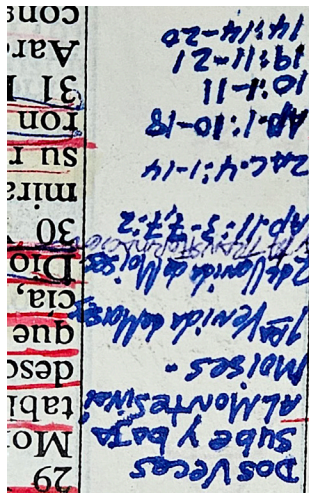 Dos Veces
sube y baja
AL Monte Sinai
Moises.
1ra Venida de Moises
2da Venida de Moises
Ap. 11:3-7, 7:2
ZAC. 4:1-14
Ap. 1:10-18
10:1-11
19:11-21
14:14-20
29
Mo
tabl
desc
que
cía,
Dio
30
mira
su
ron
31
Aar
cons